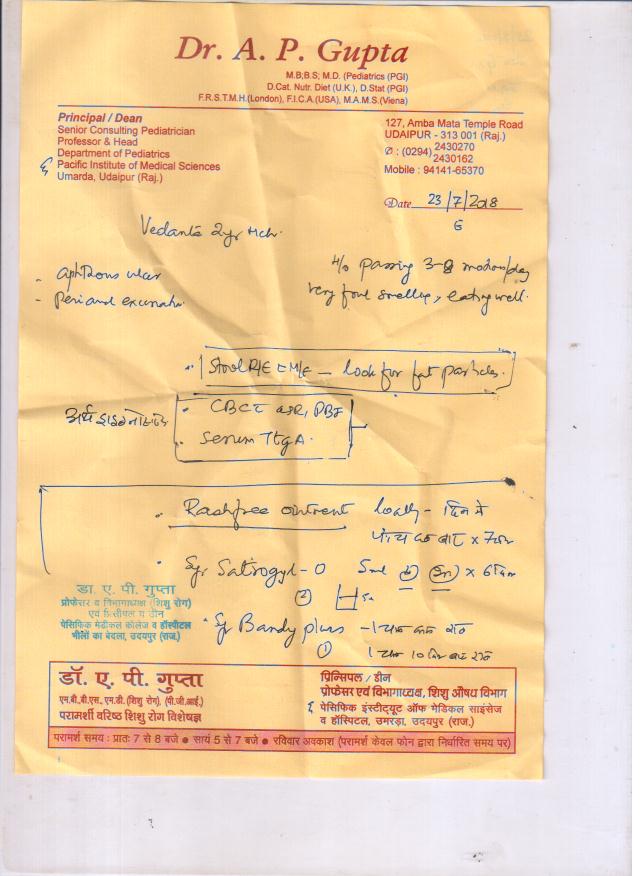 Dr. A. P. Gupta
M.B;B.S; M.D. (Pediatrics (PGI)
D.Cat. Nutr. Diet (U.K.), D.Stat (PGI)
F.R.S.T.M.H.(London), F.I.C.A.(USA), M.A.M.S.(Viena)
Principal / Dean
Senior Consulting Pediatrician
Professor & Head
Department of Pediatrics
Pacific Institute of Medical Sciences
Umarda, Udaipur (Raj.)
127, Amba Mata Temple Road
UDAIPUR - 313 001 (Raj.)
✆ : (0294) 2430270
2430162
Mobile : 94141-65370
Date 23/7/2018
Vedanta 2yr Mch.
- Aphthous ulcer
- Perianal
H/o passing 3-8 motions/day
very foul smelling, eating well.
Stool R/E M/E - look for fat particles.
CBC ESR, PBF
Serum TtgA.
Rashfree ointment locally - दिन में
पांच बार x 7
Syr Satrogyl-O 5ml x 6 दिन
Sy Bandy plus - 1
1 10 दिन बाद
डा. ए. पी. गुप्ता
प्रोफेसर व विभागाध्यक्ष (शिशु रोग)
एवं प्रिंसीपल व डीन
पेसिफिक मेडीकल कॉलेज व हॉस्पीटल
भीलों का बेदला, उदयपुर (राज.)
डॉ. ए. पी. गुप्ता
एम.बी.बी.एस., एम.डी. (शिशु रोग), (पी.जी.आई.)
परामर्शी वरिष्ठ शिशु रोग विशेषज्ञ
प्रिन्सिपल / डीन
प्रोफेसर एवं विभागाध्यक्ष, शिशु औषध विभाग
पेसिफिक इंस्टीट्यूट ऑफ मेडिकल साइंसेज
व हॉस्पिटल, उमरड़ा, उदयपुर (राज.)
परामर्श समय : प्रातः 7 से 8 बजे ● सायं 5 से 7 बजे ● रविवार अवकाश (परामर्श केवल फोन द्वारा निर्धारित समय पर)